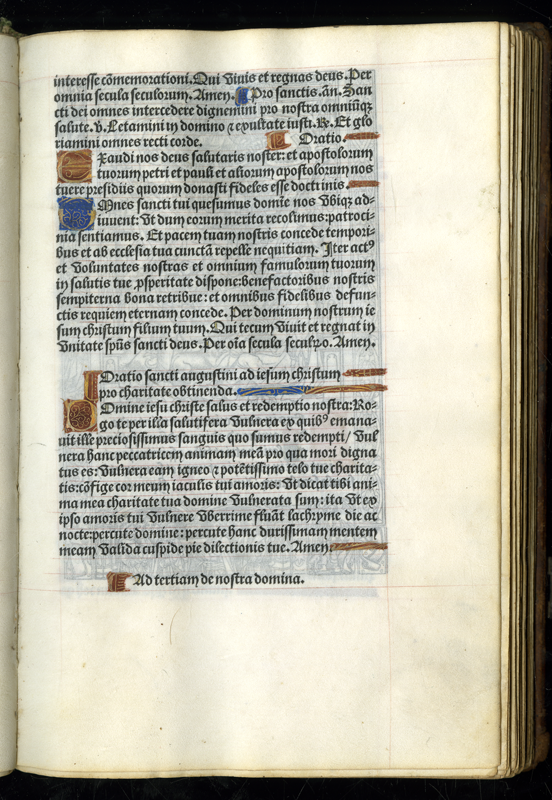 interesse cōmemorationi. Qui viuis et regnas deus. Per
omnia secula seculorum. Amen. Pro sanctis. añ. San
cti dei omnes intercedere dignemini pro nostra omniūq;
salute. v̄. Letamini in domino ⁊ exultate iusti. ℟. Et glo
riamini omnes recti corde. Oratio.
Exaudi nos deus salutaris noster: et apostolorum
tuorum petri et pauli et aliorum apostolorum nos
tuere presidiis quorum donasti fideles esse doctrinis.
Omnes sancti tui quesumus domie nos vbiq; ad-
iuuent: vt dum eorum merita recolimus: patroci-
nia sentiamus. Et pacem tuam nostris concede tempori-
bus et ab ecclesia tua cunctā repelle nequitiam. Iter actꝰ
et voluntates nostras et omnium famulorum tuorum
in salutis tue ꝓsperitate dispone: benefactoribus nostris
sempiterna bona retribue: et omnibus fidelibus defun-
ctis requiem eternam concede. Per dominum nostrum ie
sum christum filium tuum. Qui tecum viuit et regnat in
vnitate spūs sancti deus. Per oīa secula seculꝝ. Amen.
Oratio sancti augustini ad iesum christum
pro charitate obtinenda.
Domine iesu christe salus et redemptio nostra: Ro-
go te per illa salutifera vulnera ex quibꝰ emana-
uit ille preciosissimus sanguis quo sumus redempti/ vul
nera hanc peccatricem animam meā pro qua mori digna
tus es: vulnera eam igneo ⁊ potētissimo telo tue charita-
tis: cōfige cor meum iaculis tui amoris: vt dicat tibi ani-
ma mea charitate tua domine vulnerata sum: ita vt ex
ipso amoris tui vulnere vberrime fluāt lachryme die ac
nocte: percute domine: percute hanc durissimam mentem
meam valida cuspide pie dilectionis tue. Amen.
Ad tertiam de nostra domina.